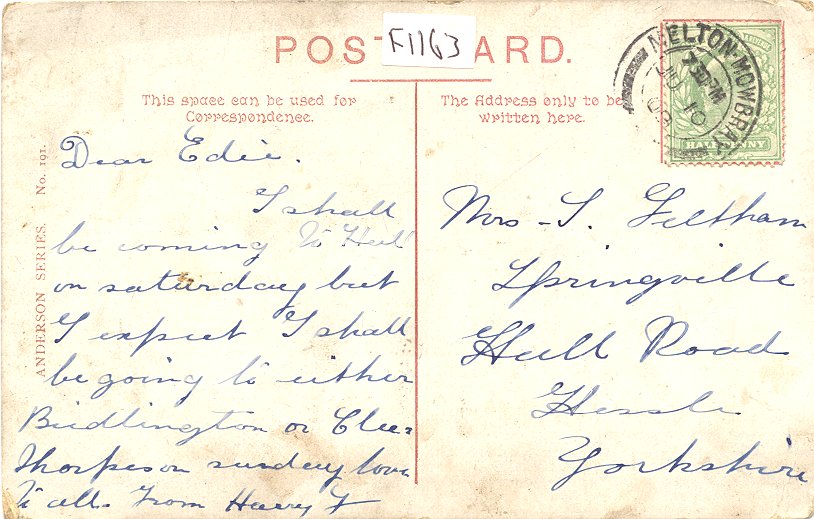 POST CARD.
F1163
MELTON-MOWBRAY
7.30PM
JU 10
HALFPENNY
This space can be used for
Correspondence.
The Address only to be
written here.
ANDERSON SERIES. No. 191.
Dear Edie.
I shall
be coming to Hull
on saturday but
I expect I shall
be going to either
Bridlington or Clee=
thorpes on sunday love
to all. From Harry F
Mrs - S. Feltham
Springville
Hull Road
Hessle
Yorkshire